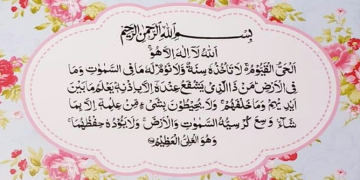 بِسْمِ اللهِ الرَّحْمٰنِ الرَّحِيْمِ
اَللهُ لَآ اِلٰهَ اِلَّا هُوَ
اَلْحَيُّ الْقَيُّوْمُ لَا تَاْخُذُهٗ سِنَةٌ وَّلَا نَوْمٌ لَهٗ مَا فِي السَّمٰوٰتِ وَمَا
فِي الْاَرْضِ مَنْ ذَا الَّذِيْ يَشْفَعُ عِنْدَهٗٓ اِلَّا بِاِذْنِهٖ يَعْلَمُ مَا بَيْنَ
اَيْدِيْهِمْ وَمَا خَلْفَهُمْ وَلَا يُحِيْطُوْنَ بِشَيْءٍ مِّنْ عِلْمِهٖٓ اِلَّا بِمَا
شَآءَ وَسِعَ كُرْسِيُّهُ السَّمٰوٰتِ وَالْاَرْضَ وَلَا يَئُوْدُهٗ حِفْظُهُمَا
وَهُوَ الْعَلِيُّ الْعَظِيْمُ